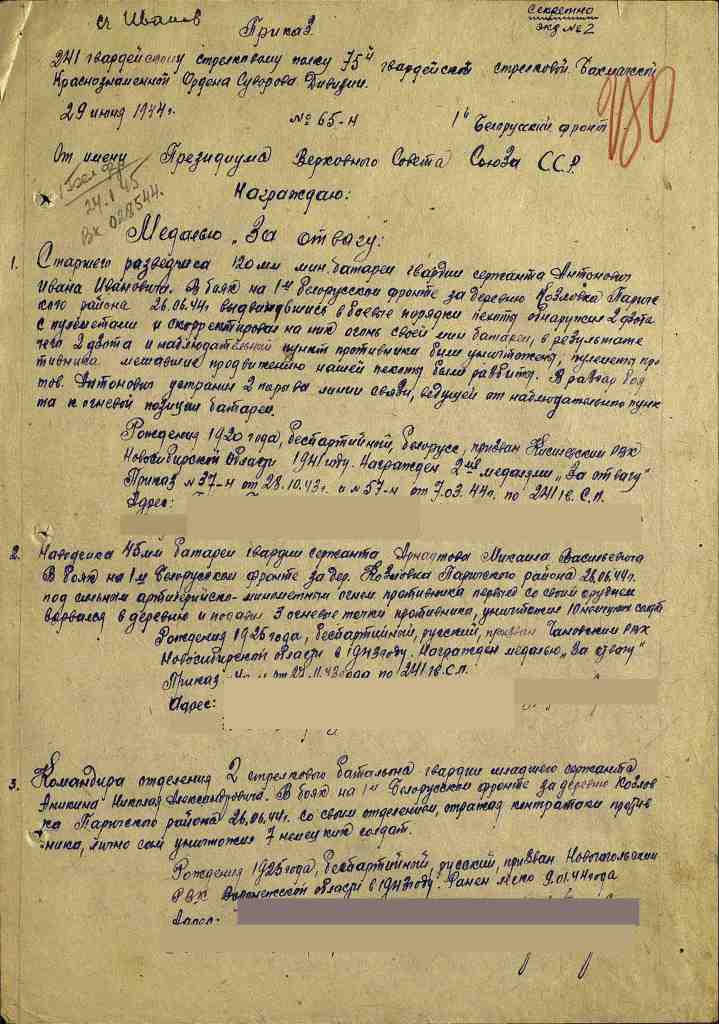 сч Иванов
Секретно
экз №2
Приказ
241 гвардейскому стрелковому полку 75й гвардейской стрелковой Бахмачской
Краснознаменной Ордена Суворова Дивизии.
29 июня 1944г. № 65-н 1й Белорусский фронт
980
От имени Президиума Верховного Совета Союза С.С.Р.
24.1 45
Вк 028544.
Награждаю:
Медалью „За отвагу":
1. Старшего разведчика 120 мм мин. батареи гвардии сержанта Антонович
Ивана Ивановича. В боях на 1м Белорусском фронте за деревню Козловка Парич-
ского района 26.06.44г выдвинувшись в боевые порядки пехоты обнаружил 2 дзота
с пулеметами и скорректировал на них огонь своей мин батареи, в результате
чего 2 дзота и наблюдательный пункт противника были уничтожены, пулемета про
тивника мешавшие продвижению нашей пехоты были разбиты. В разгар боя
тов. Антонович устранил 2 порыва линии связи, ведущей от наблюдательного пунк
та к огневой позиции батареи.
Рождения 1920 года, беспартийный, белорусс, призван РВК
Новосибирской области 1941 году. Награжден 2мя медалями „За отвагу"
Приказ №37-н от 28.10.43г. и №57-н от 7.03.44г. по 241 гв. С.П.
Адрес:
2. Наводчика 45мм батареи гвардии сержанта Михаила Васильевича
В боях на 1м Белорусском фронте за дер. Козловка Паричского района 26.06.44г.
под сильным артиллерийско-минометным огнем противника первый со своим орудием
ворвался в деревню и подавил 3 огневые точки противника, уничтожил 10 солдт
Рождения 1925 года, беспартийный, русский, призван Чановским РВК
Новосибирской области в 1943 году. Награжден медалью „За отвагу"
Приказ от 11.43 года по 241 гв. С.П.
Адрес:
3. Командира отделения 2 стрелкового батальона гвардии младшего сержанта
Аникина Николая Александровича. В боях на 1м Белорусском фронте за деревню Козлов
ка Паричского района 26.06.44г. со своим отделением, отражая контратаки против
ника, лично сам уничтожил 7 немецких солдат.
Рождения 1925 года, беспартийный, русский, призван
РВК Воронежской области в 1943 году. Ранен легко 9.01.44 года